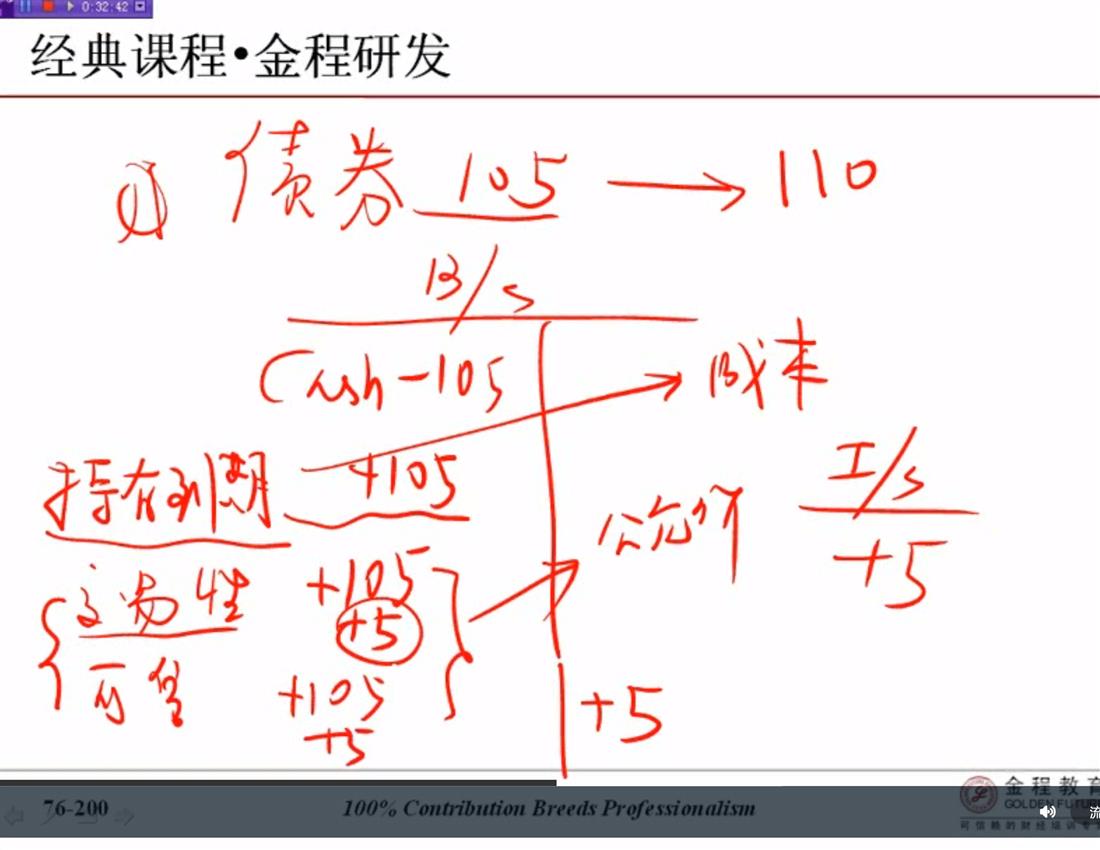 0:32:42
经典课程•金程研发
① 债券 105 → 110
B/S
Cash -105
成本
持有到期 +105
I/S
公允价
+5
交易性 +105
+5
可售 +105
+5
+5
76-200
100% Contribution Breeds Professionalism
金程教育
GOLDEN FUTUR
可信赖的财经培训专
流